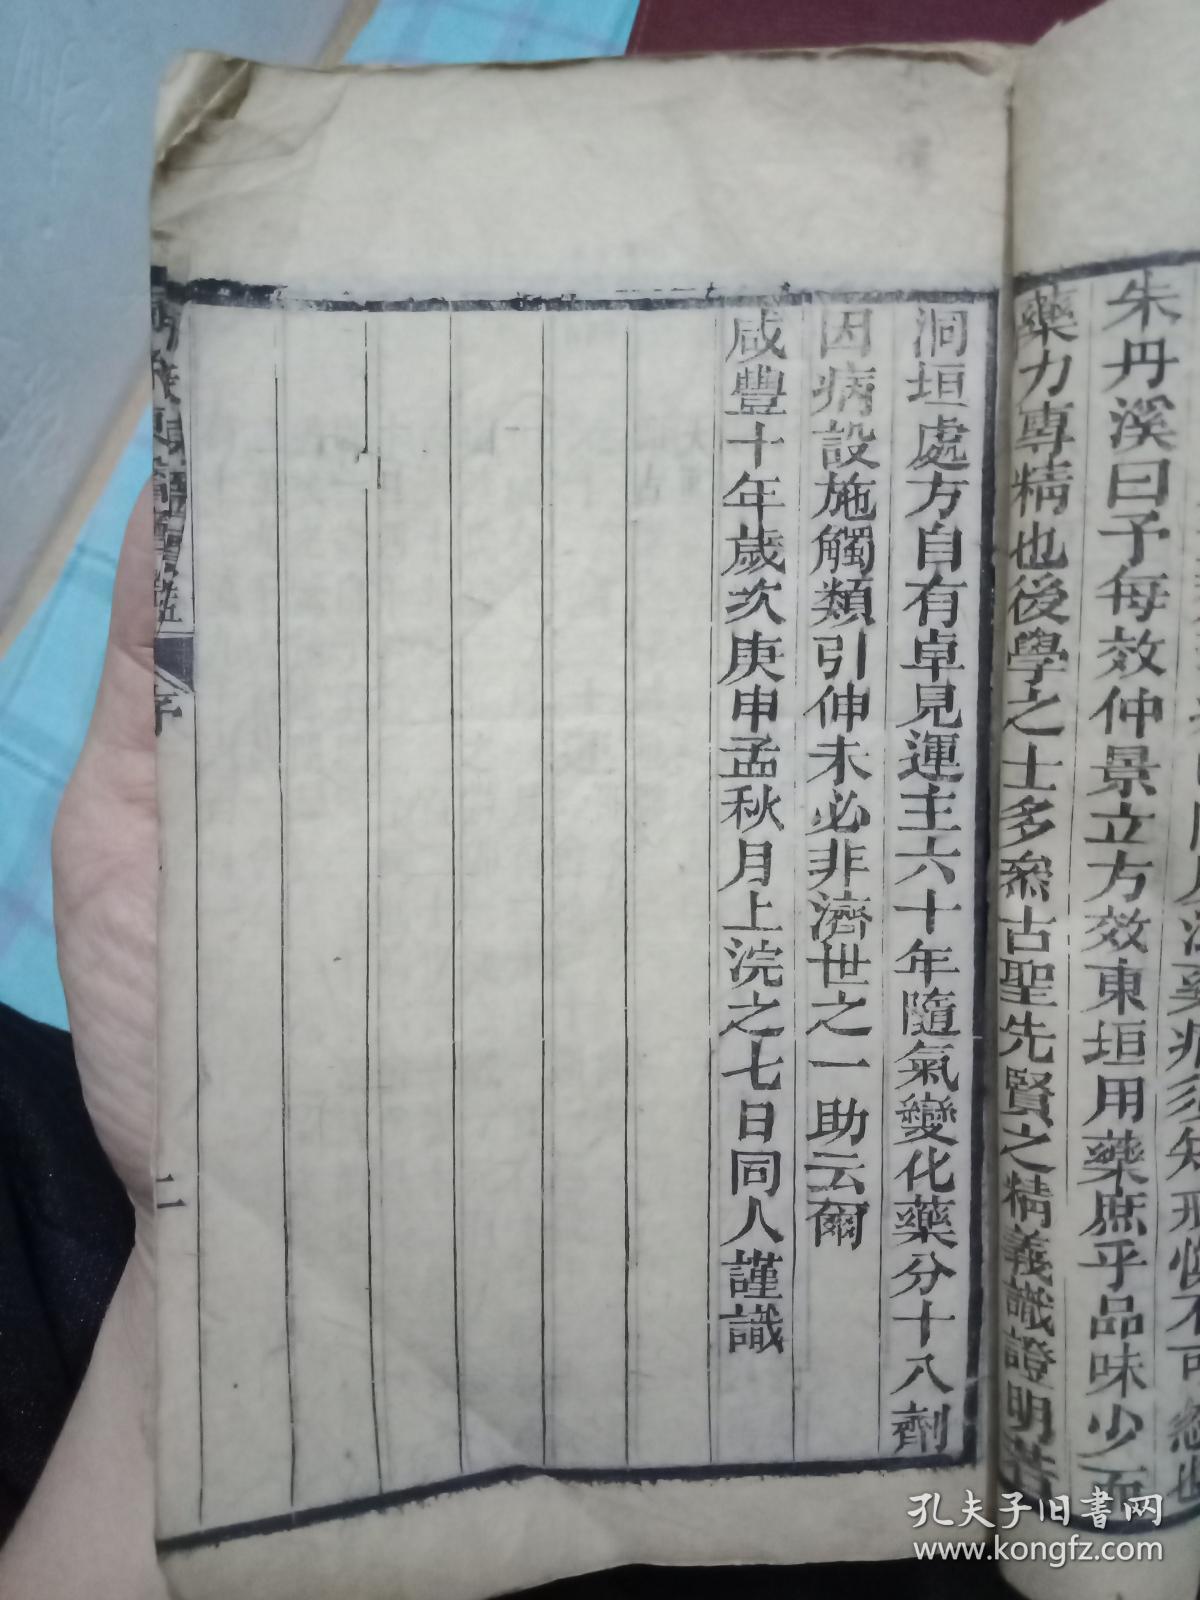 朱丹溪曰予每效仲景立方效東垣用藥庶乎品味少而
藥力專精也後學之士多叅古聖先賢之精義識證明昔
洞垣處方自有卓見運主六十年隨氣變化藥分十八劑
因病設施觸類引伸未必非濟世之一助云爾
咸豐十年歲次庚申孟秋月上浣之七日同人謹識
序
二
孔夫子旧书网
www.kongfz.com